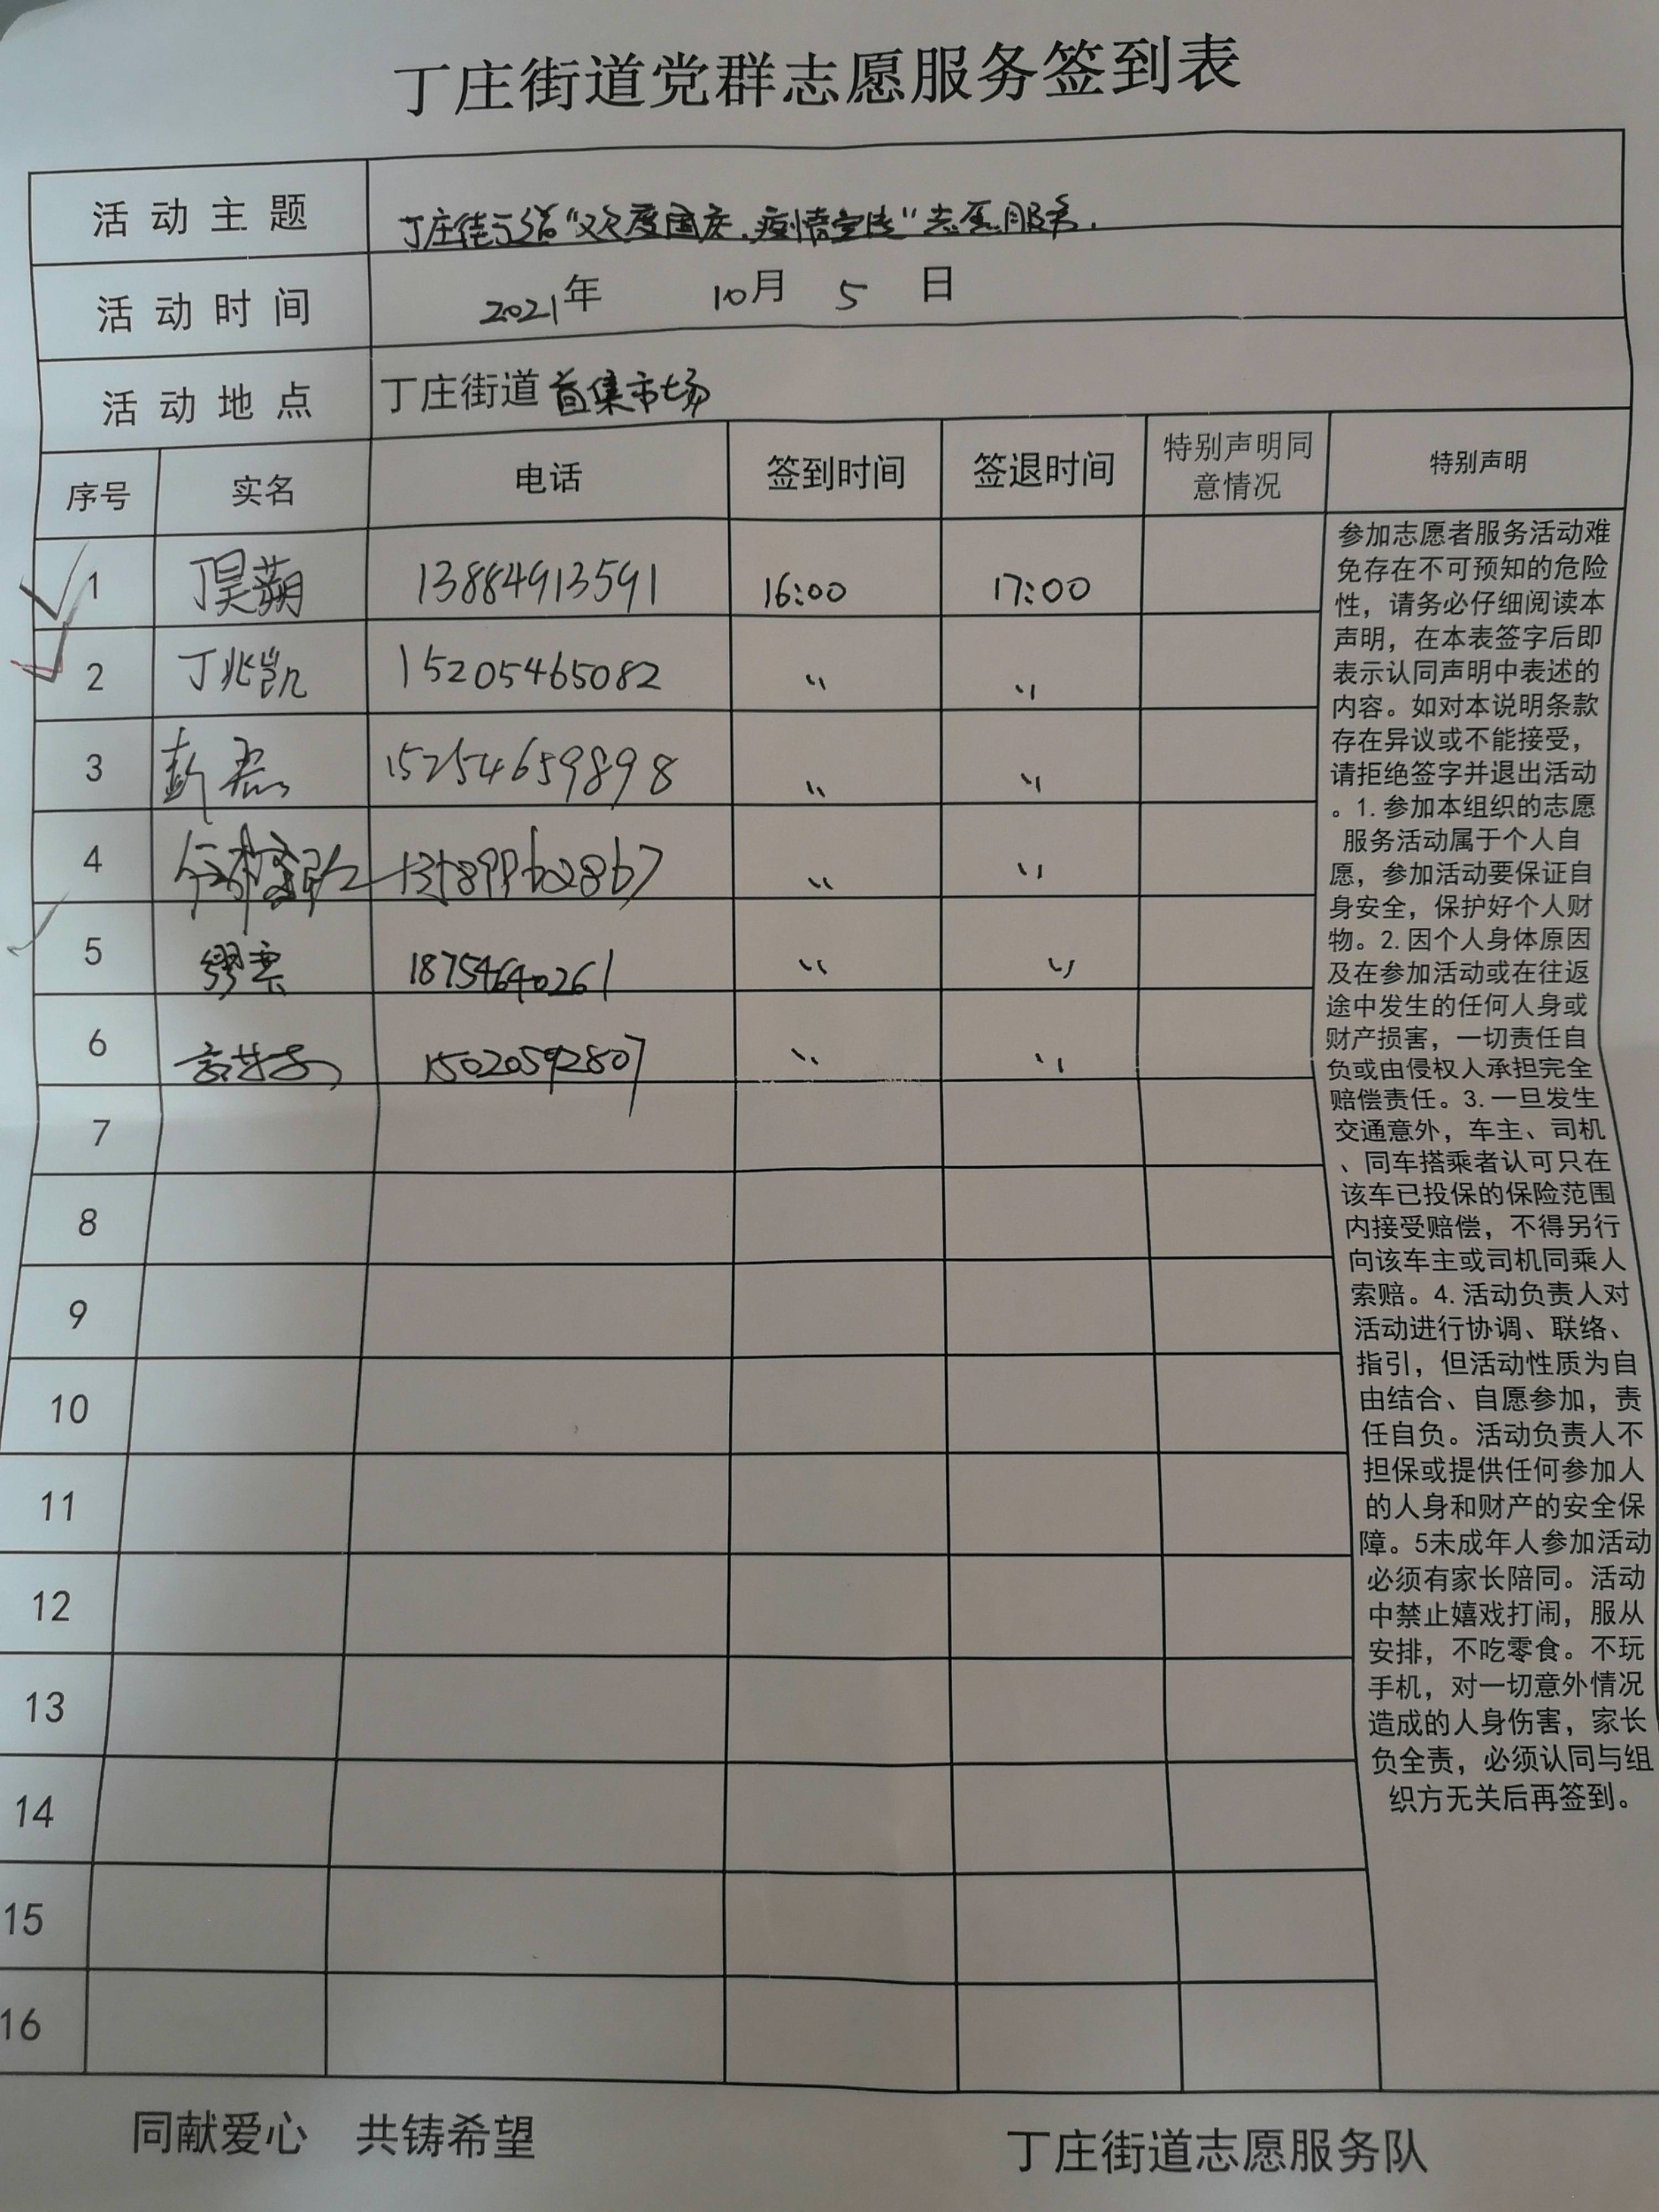 丁庄街道党群志愿服务签到表
活动主题 丁庄街道“欢度国庆.疫情宣传”志愿服务.
活动时间 2021年 10月 5 日
活动地点 丁庄街道 集市场
序号 实名 电话 签到时间 签退时间 特别声明同意情况 特别声明
1 丁昊蒴 13884913591 16:00 17:00
2 丁兆凯 15205465082 〃 〃
3 彭磊 15254659898 〃 〃
4 13589962867 〃 〃
5 缪票 18754640261 〃 〃
6 15020592807 〃 〃
7
8
9
10
11
12
13
14
15
16
参加志愿者服务活动难
免存在不可预知的危险
性，请务必仔细阅读本
声明，在本表签字后即
表示认同声明中表述的
内容。如对本说明条款
存在异议或不能接受，
请拒绝签字并退出活动
。1.参加本组织的志愿
服务活动属于个人自
愿，参加活动要保证自
身安全，保护好个人财
物。2.因个人身体原因
及在参加活动或在往返
途中发生的任何人身或
财产损害，一切责任自
负或由侵权人承担完全
赔偿责任。3.一旦发生
交通意外，车主、司机
、同车搭乘者认可只在
该车已投保的保险范围
内接受赔偿，不得另行
向该车主或司机同乘人
索赔。4.活动负责人对
活动进行协调、联络、
指引，但活动性质为自
由结合、自愿参加，责
任自负。活动负责人不
担保或提供任何参加人
的人身和财产的安全保
障。5未成年人参加活动
必须有家长陪同。活动
中禁止嬉戏打闹，服从
安排，不吃零食。不玩
手机，对一切意外情况
造成的人身伤害，家长
负全责，必须认同与组
织方无关后再签到。
同献爱心 共铸希望
丁庄街道志愿服务队